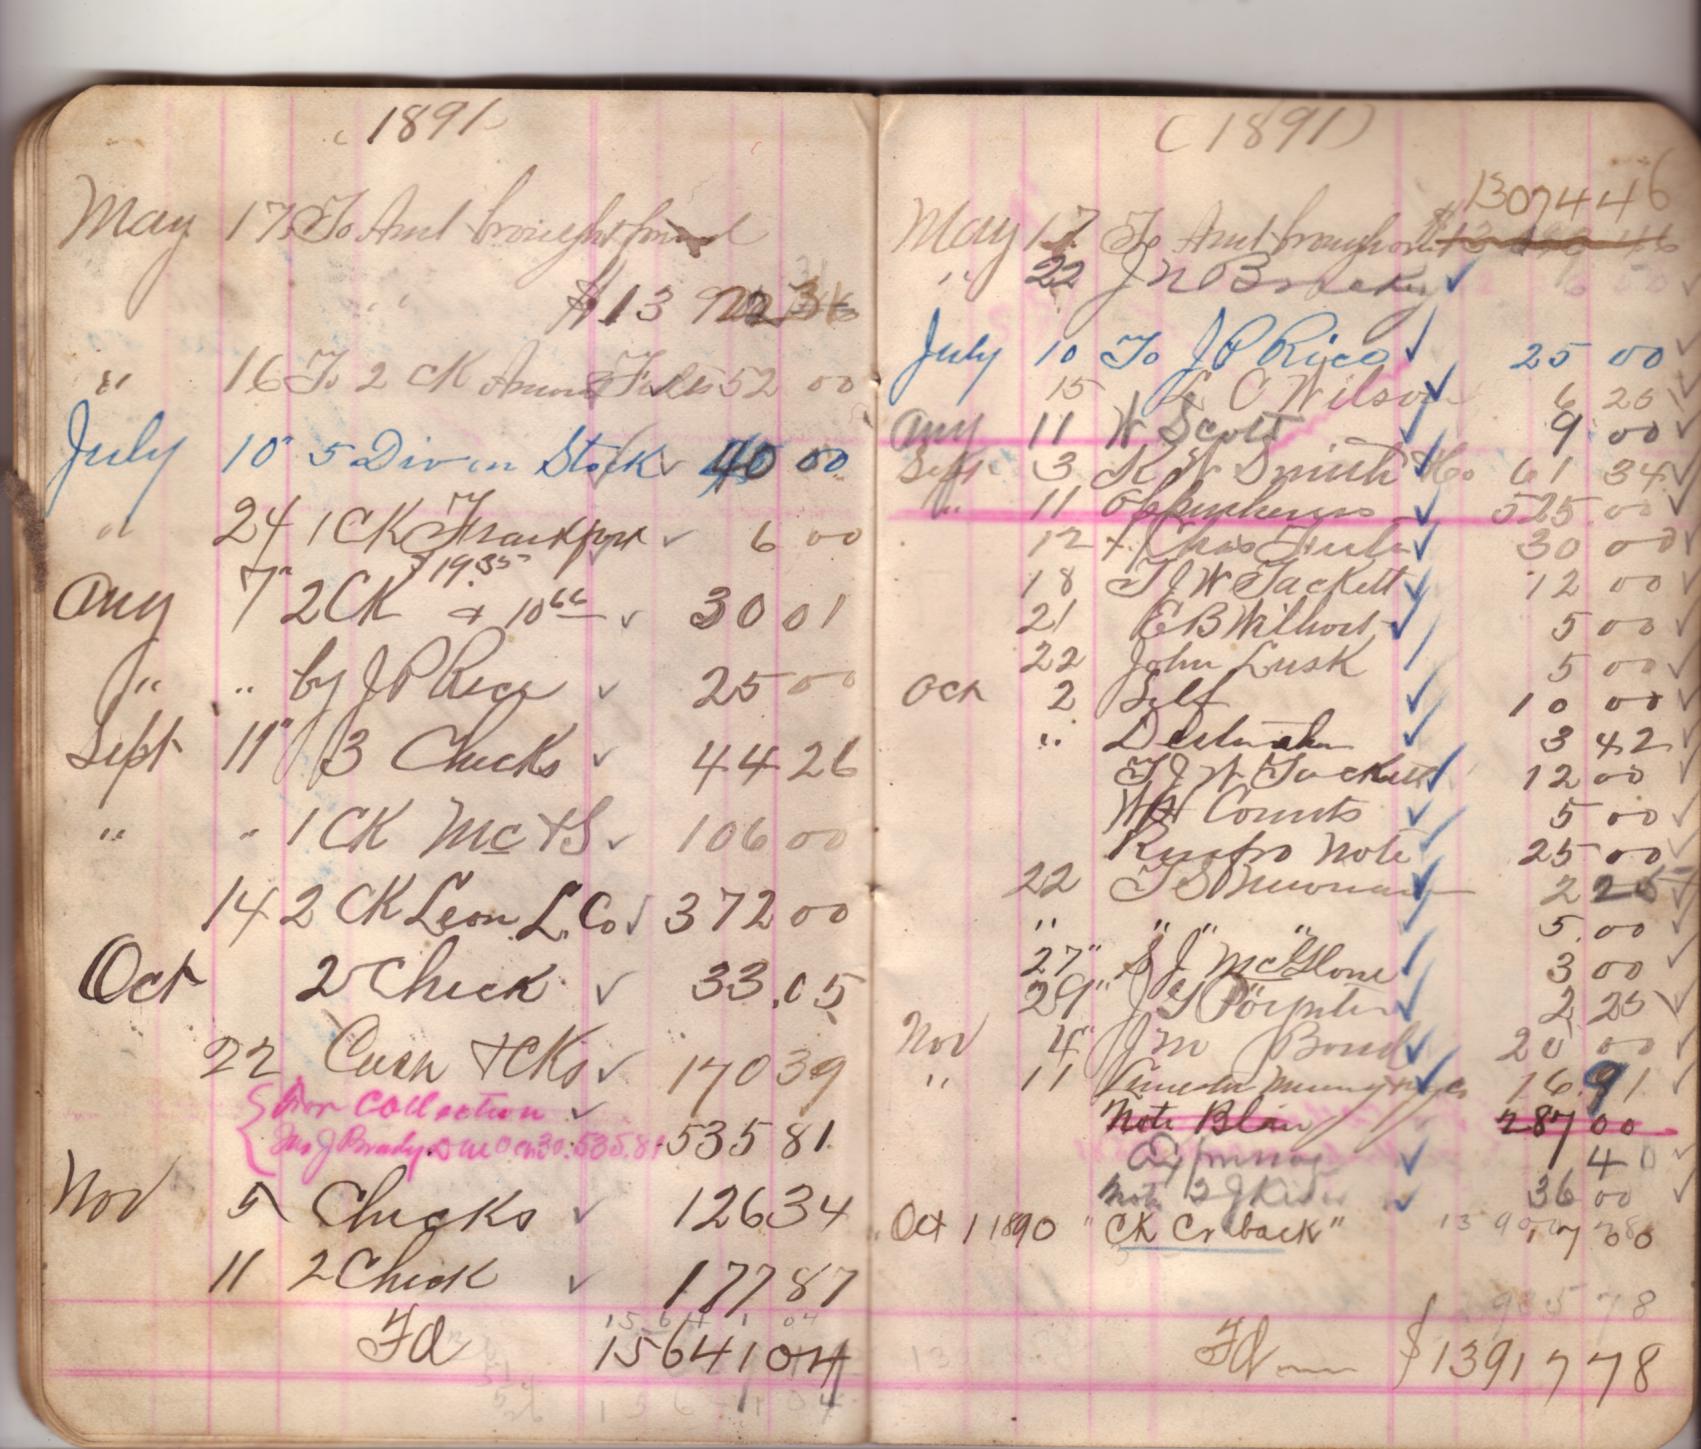 1891
May 17 To Amt brought forward
" $13 922 34
" 16 To 2 CK 52 00
July 10" 5 Div in Stock 40 00
" 24 1 CK Frankfort 6 00
$19.35
Aug 7" 2 CK & 10 66 30 01
" " by J P Rice 25 00
Sept 11" 3 Checks 44 26
" " 1 CK Mc & S 106 00
14 2 CK Leon L. Co 372 00
Oct 2 Check 33.05
22 Cash & CKs 170 39
For Collection
Jno J Brady Due 30. 535.81 535 81
Nov 5 Checks 126 34
11 2 Check 177 87
15 641 04
Fd 15641 04
(1891)
13074 46
May 17 To Amt brought
" 22 J N
July 10 To J P Rice 25 00
15 L C Wilson 6 25
Aug 11 W Scott 9 00
Sept 3 K W Smith & Co 61 34
" 11 525.00
12 Chas 30 00
18 T J W Tackett 12 00
21 E B Wilhoit 5 00
22 John Lusk 5 00
Oct 2 Self 10 00
" 3 42
T J W Tackett 12 00
W H Counts 5 00
Note 25 00
22 T S 2 25
" " " " 5.00
27" S J McGlone 3 00
29" J G Poynter 2 25
Nov 4" J M Bond 20 00
" 11 16.91
Note Blair 287 00
40
Note 36 00
Oct 1 1890 "CK Cr back" 17 30
Fd $13917 78